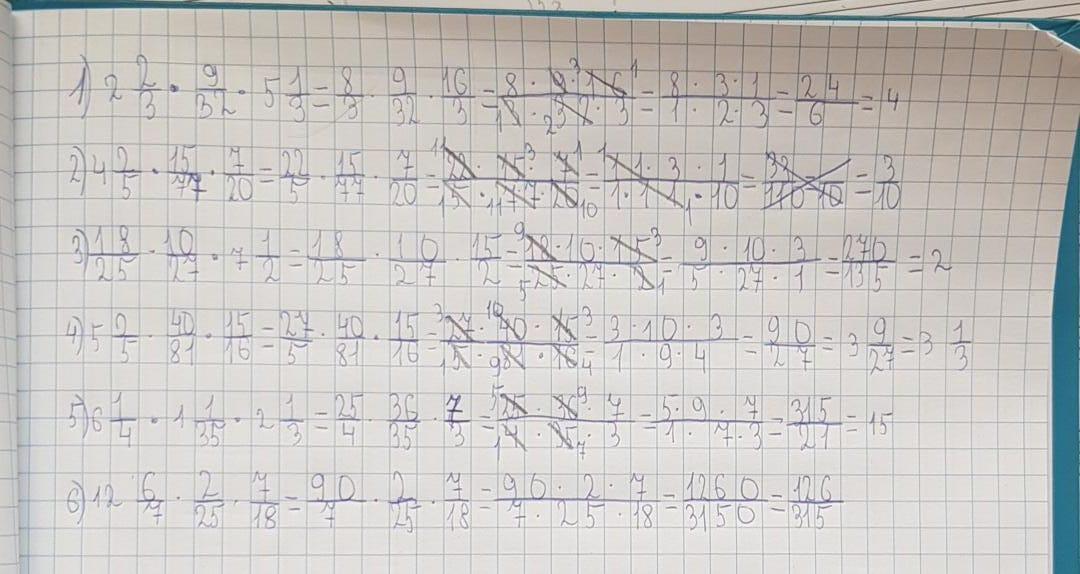 1) 2 2/3 · 9/32 · 5 1/3 = 8/3 · 9/32 · 16/3 = 8 · 9 · 16 / 3 · 32 · 3 = 8 · 3 · 1 / 1 · 2 · 3 = 24/6 = 4
2) 4 2/5 · 15/77 · 7/20 = 22/5 · 15/77 · 7/20 = 22 · 15 · 7 / 5 · 77 · 20 = 11 · 3 · 1 / 1 · 11 · 10 = 3/10
3) 18/25 · 10/27 · 7 1/2 = 18/25 · 10/27 · 15/2 = 18 · 10 · 15 / 25 · 27 · 2 = 9 · 10 · 3 / 5 · 27 · 1 = 270/135 = 2
4) 5 2/5 · 40/81 · 15/16 = 27/5 · 40/81 · 15/16 = 27 · 40 · 15 / 5 · 81 · 16 = 3 · 10 · 3 / 1 · 9 · 4 = 90/27 = 3 9/27 = 3 1/3
5) 6 1/4 · 1 1/35 · 2 1/3 = 25/4 · 36/35 · 7/3 = 25 · 36 · 7 / 4 · 35 · 3 = 5 · 9 · 7 / 1 · 7 · 3 = 315/21 = 15
6) 12 6/7 · 2/25 · 7/18 = 90/7 · 2/25 · 7/18 = 90 · 2 · 7 / 7 · 25 · 18 = 1260/3150 = 126/315